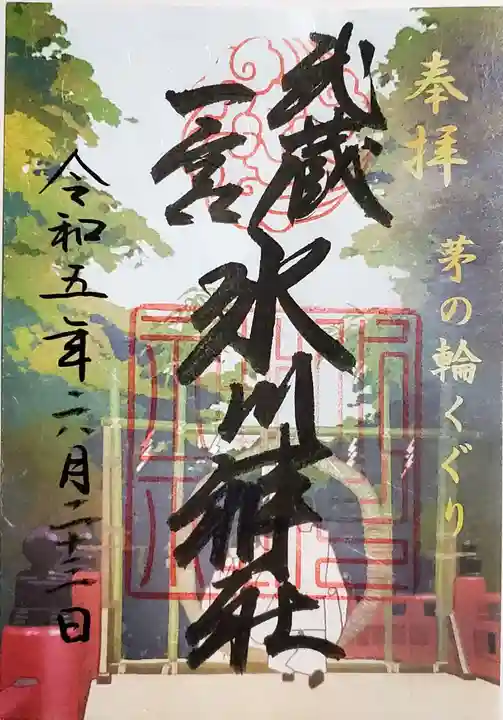 奉拝 茅の輪くぐり
武蔵
一宮
氷川神社
令和五年六月二十二日